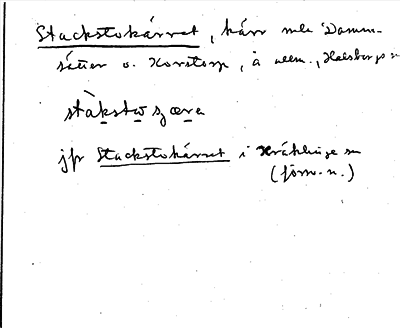 Stackstokärret, kärr mln Damm-
sätter o. Korstorp, å allm., Halsbergs sn
stàkstω sʒæra
jfr Stackstokärret i Kräklinge sn
(förn. n.)